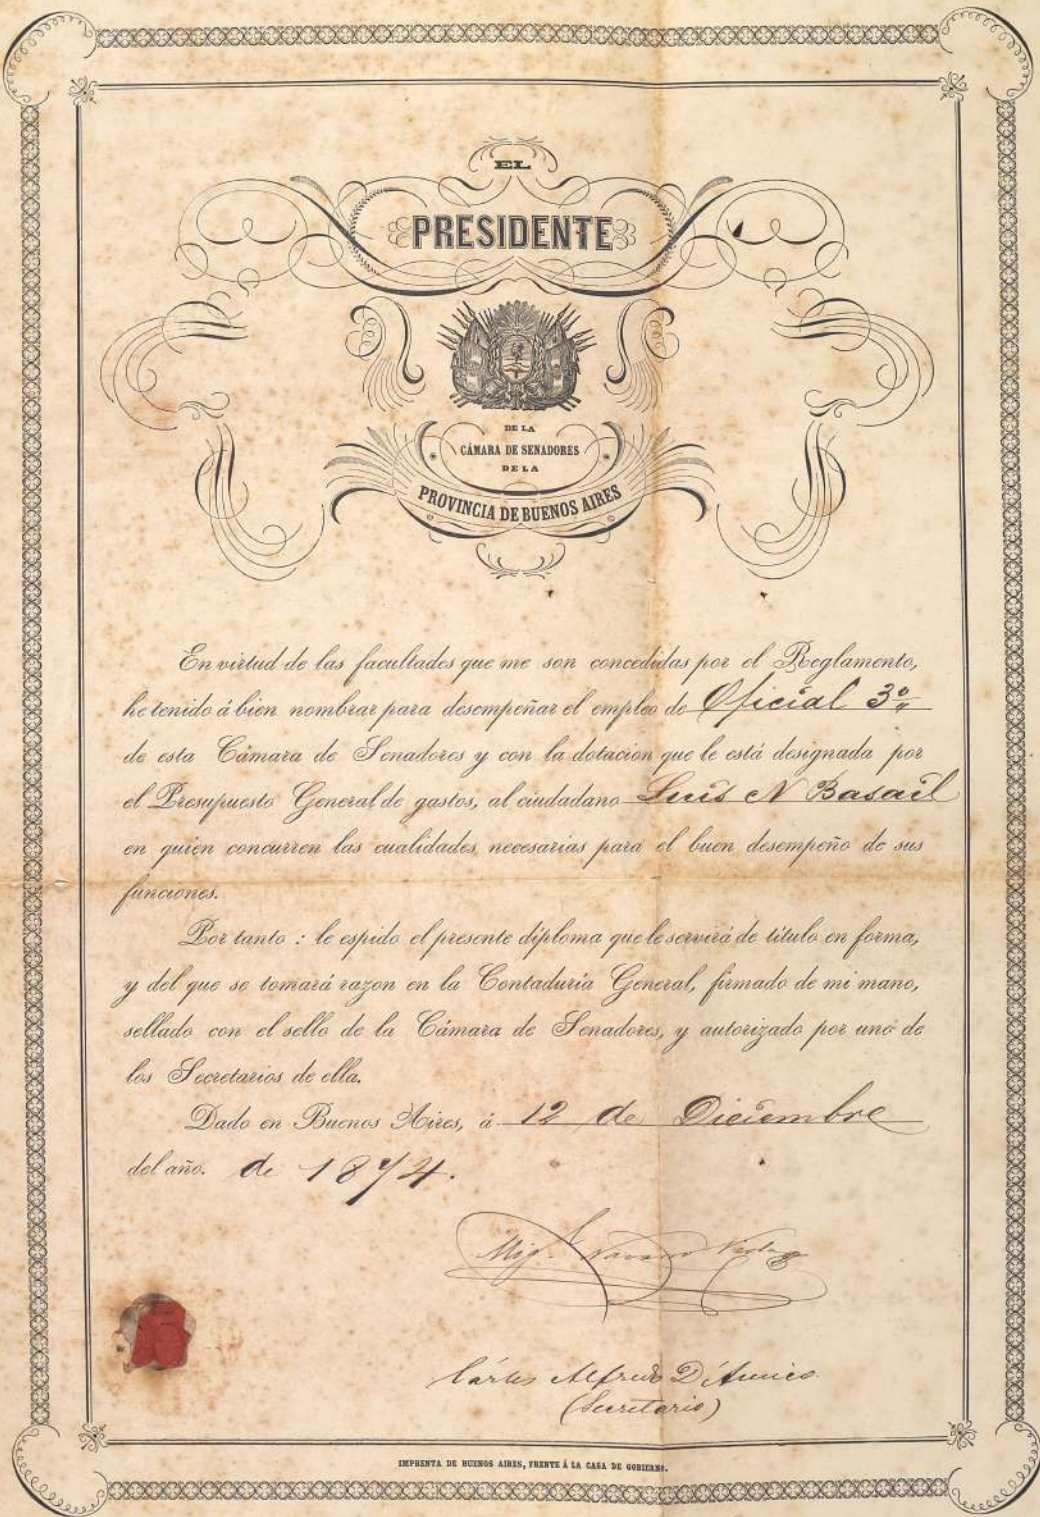 EL
PRESIDENTE
DE LA
CÁMARA DE SENADORES
DE LA
PROVINCIA DE BUENOS AIRES
En virtud de las facultades que me son concedidas por el Reglamento,
he tenido á bien nombrar para desempeñar el empleo de Oficial 3º
de esta Cámara de Senadores y con la dotacion que le está designada por
el Presupuesto General de gastos, al ciudadano Luis N Basail
en quien concurren las cualidades necesarias para el buen desempeño de sus
funciones.
Por tanto : le espido el presente diploma que le servirá de título en forma,
y del que se tomará razon en la Contaduría General, firmado de mi mano,
sellado con el sello de la Cámara de Senadores, y autorizado por uno de
los Secretarios de ella.
Dado en Buenos Aires, á 12 de Diciembre
del año. de 1874.
Mig. Navarro Viola
Cárlos Alfredo D'Amico
(Secretario)
IMPRENTA DE BUENOS AIRES, FRENTE Á LA CASA DE GOBIERNO.